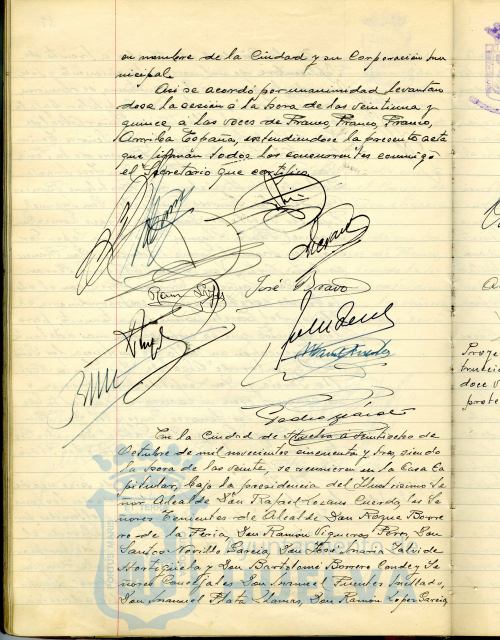 en nombre de la Ciudad y su Corporación mu
nicipal.
Así se acordó por unanimidad levantan
dose la sesión a la hora de las veintiuna y
quince, a las voces de Franco, Franco, Franco,
Arriba España, extendiendose la presente acta
que firman todos los concurrentes conmigo
el Secretario que certifico.
José Bravo
En la Ciudad de Huelva a veintiocho de
Octubre de mil novecientos cincuenta y tres, siendo
la hora de las veinte, se reunieron en la Casa Ca
pitular, bajo la presidencia del Ilustrisimo Se
ñor Alcalde Don Rafael Lozano Cuerda, los Se
ñores Tenientes de Alcalde Don Roque Borre
ro de la Feria, Don Ramón Vigueras Perez, Don
Santos Novillo Garcia, Don José Maria
y Don Bartolomé Borrero Conde y Se
ñores Concejales Don Manuel Fuentes
Don Manuel Plata Llamas, Don Ramón Lopez Garcia,
Proye
trucció
doce v
prote